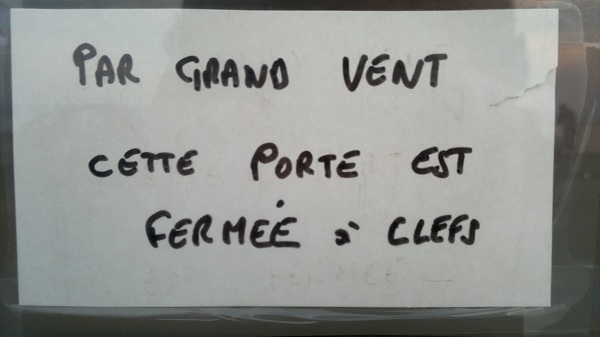 PAR GRAND VENT
CETTE PORTE EST
FERMÉE à CLEFS